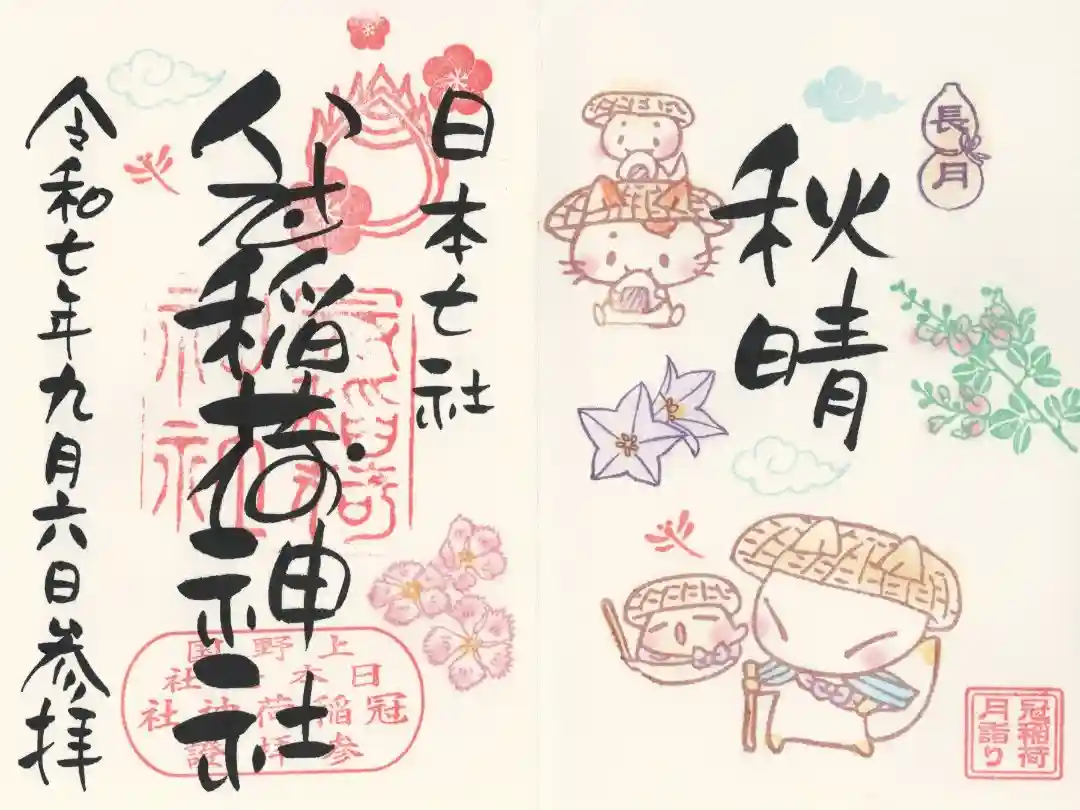 長月
秋晴
冠稲荷
月詣り
日本七社
冠稲荷神社
上野国
日本七社
冠稲荷神社
参拝證
令和七年九月六日参拝